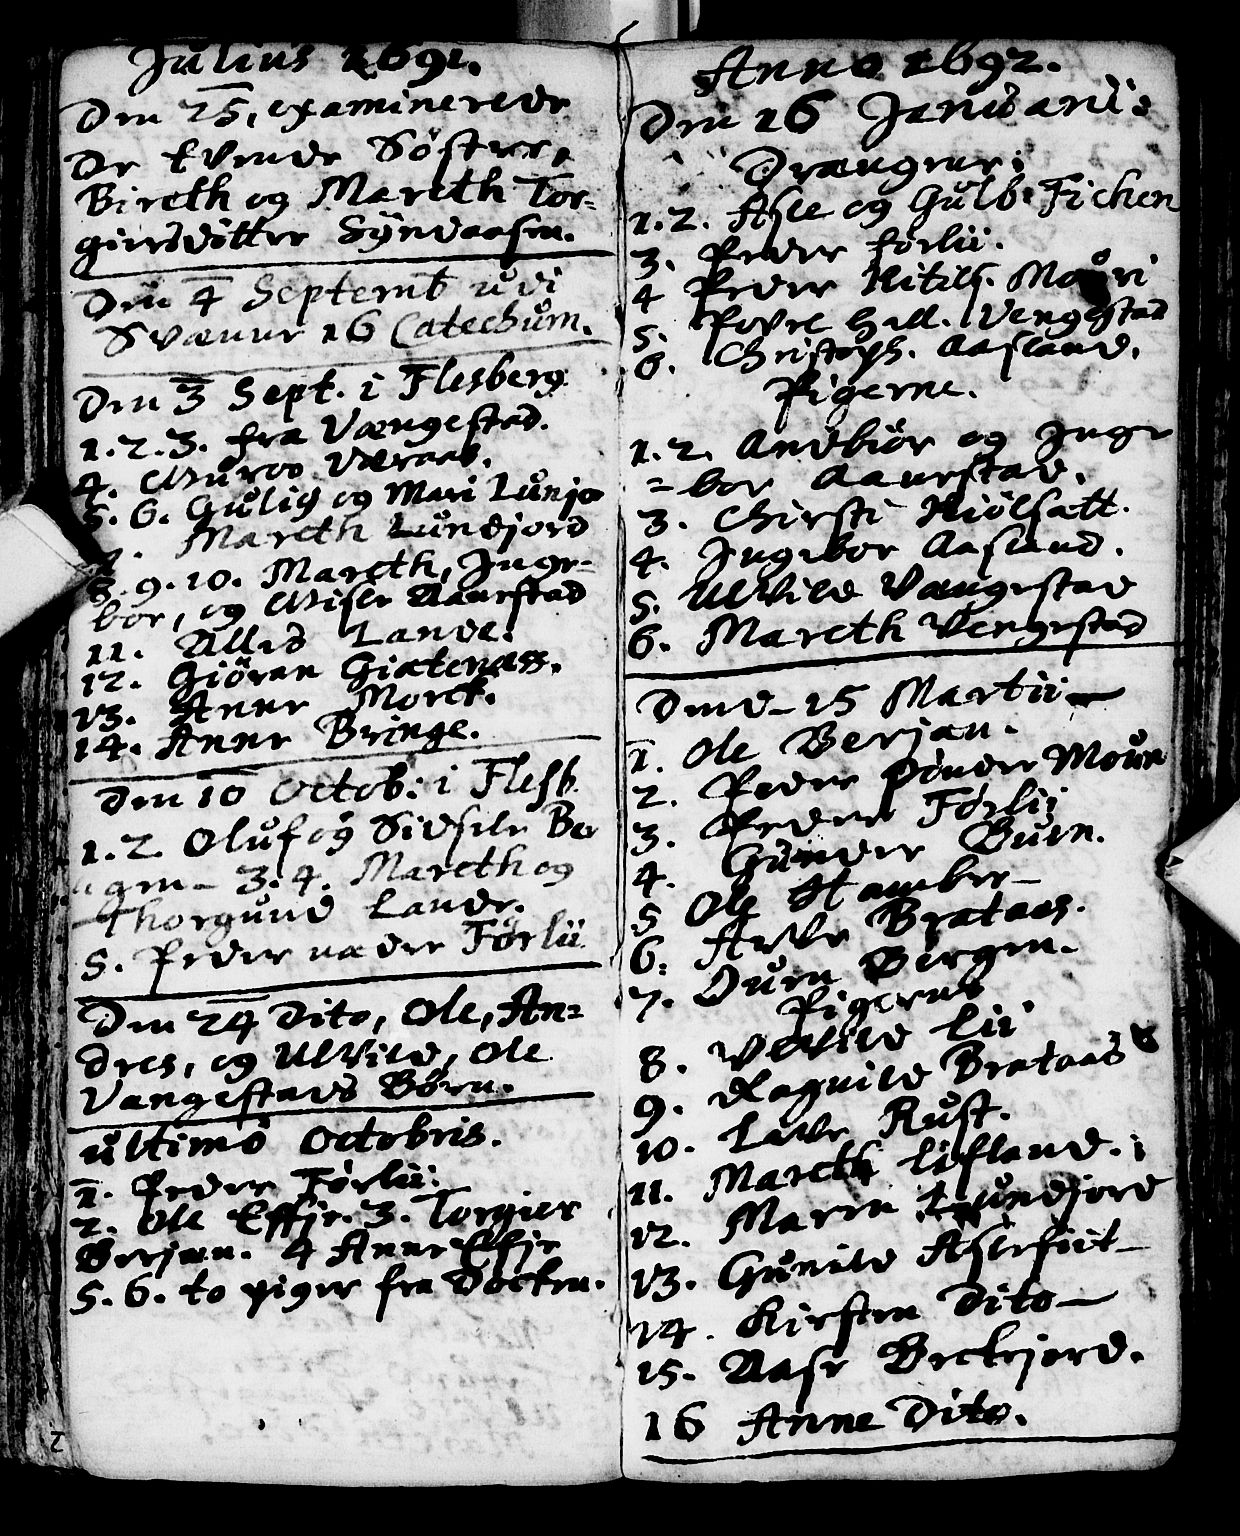 Julius 1691.
Den 25, examinerede
De tvende Söstre,
Bireth og Mareth Tor-
giersdötter Syndaasen.
Den 4 Septemb udi
Svænne 16 Catechum.
Den 3 Sept. i Flesberg
1. 2. 3. fra Vængestad.
4. Guroe Aaraas.
5. 6. Gulig og Mari Lunjo
7. Mareth Lundjord
8. 9. 10. Mareth, Inge-
bor, og Aaurstad
11. Allis Lande.
12. Giöran Giatenæss.
13. Anne Morck.
14. Anne Bringe.
Den 10 Octob: i Flesb
1. 2. Oluf og Sidsele Ber
agen - 3. 4. Mareth og
Thorgund Lande.
5. Peder nædre Förlii
Den 24 Dito, Ole, An=
dres, og Ulvild, Ole
Vangestads Börn.
ultimo Octobris.
1. Peder Förlii.
2. Ole Effje. 3. Torgier
Berjan. 4 Anne Effje
5. 6. to piger fra Docken.
Anno 1692.
Den 16 Januarii
Drængene:
1. 2. Asle og Gulb. Fichen
3. Peder förlii.
4 Peder Kitils. Mouri
5. Povel Hall. Vengestad
6. Christoph. Aasland.
Pigerne.
1. 2. Andbiör og Inge
=bor Aaurstad.
3. Chirsti Kiölsatt.
4. Ingebor Aasland.
5. Ulvild Vangestad
6. Mareth Vengestad
Dend - 15 Martii -
1. Ole Berjan.
2. Peder Pöuder Moun
3. Peder Förlii
4. Gunder Buin.
5 Ole Hambre -
6. Arve Brataas.
7. Ouen Bergen.
Pigerne
8. Ulvild Lii
9. Ragnild Brataas
10. Live Rust.
11. Mareth Lifland.
12. Maren Lundjord
13. Gunild Aslefiit -
14. Kirsten Dito -
15. Aase Beckjord.
16 Anne Dito.